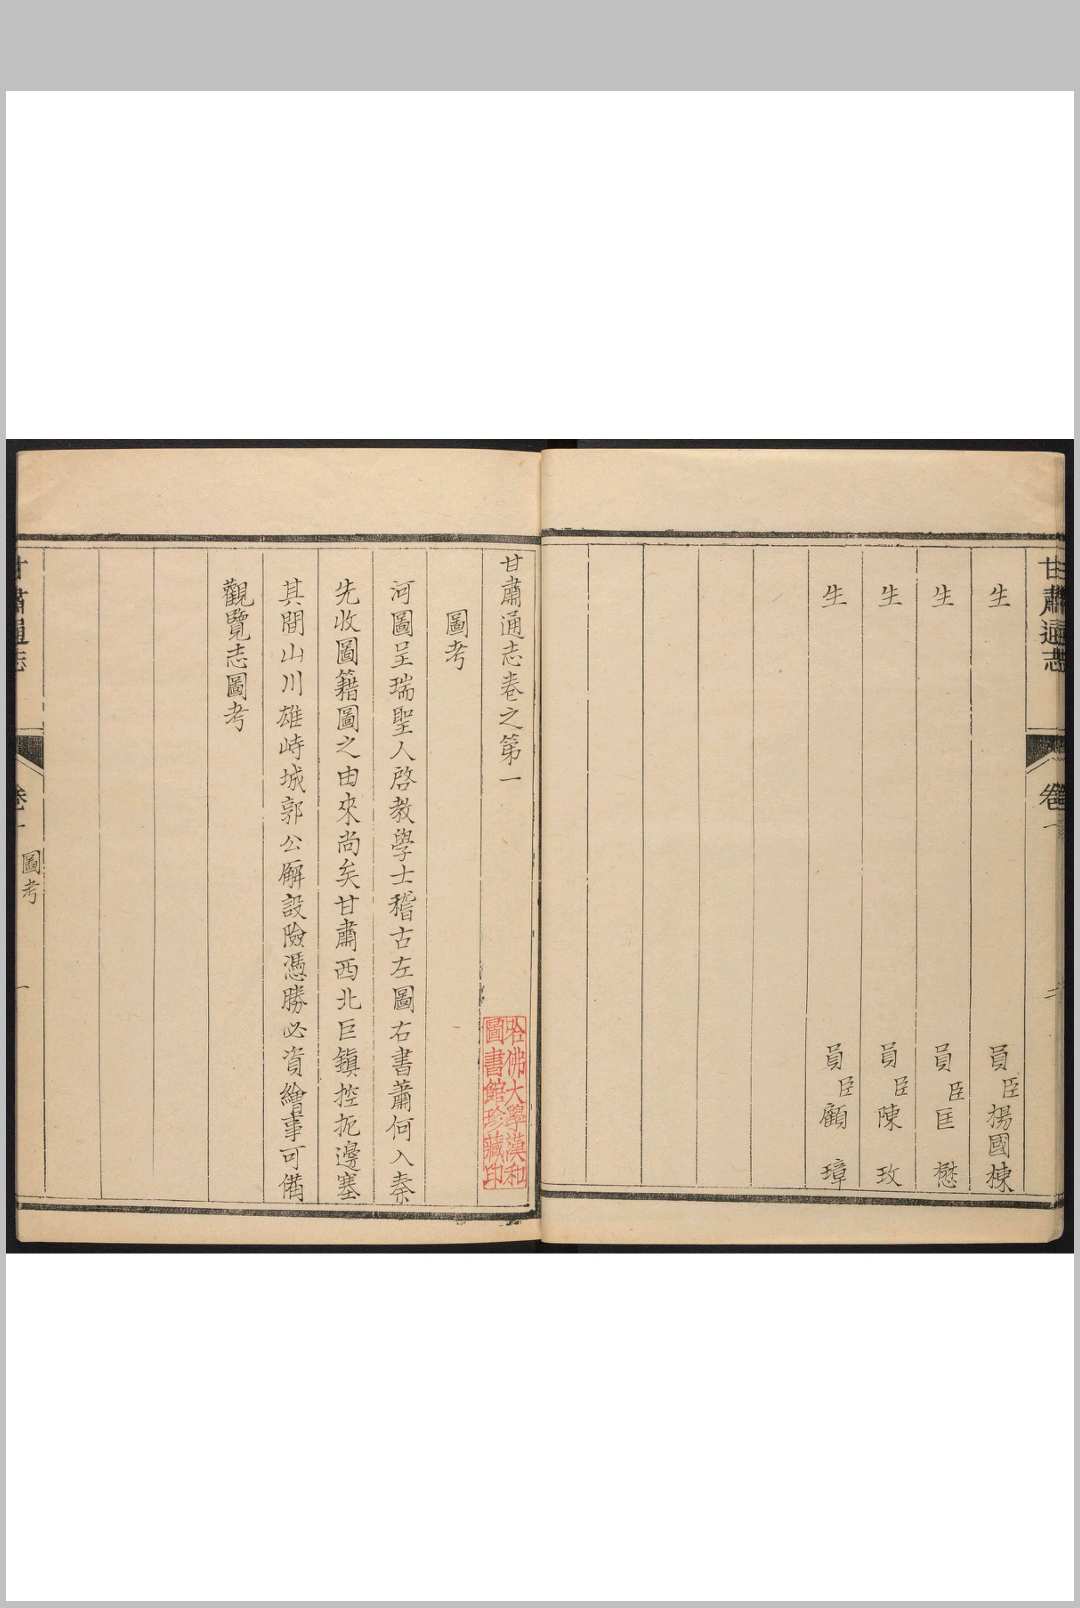 甘肅通志
卷
生 員臣楊國棟
生 員臣匡 懋
生 員臣陳 玫
生 員臣顧 璋
甘肅通志卷之第一
圖考
河圖呈瑞聖人啓教學士稽古左圖右書蕭何入秦
先收圖籍圖之由來尚矣甘肅西北巨鎭控扼邊塞
其間山川雄峙城郭公廨設險憑勝必資繪事可備
觀覽志圖考
哈佛大學漢和
圖書館珍藏印
甘肅通志
卷一
圖考
一